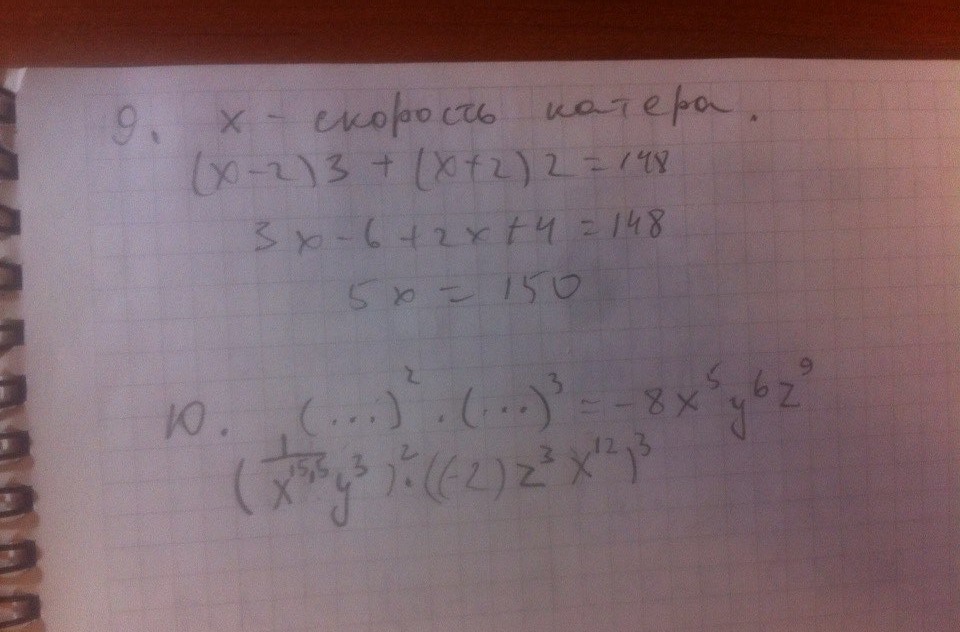 9. x - скорость катера.
(x-2)3 + (x+2)2 = 148
3x - 6 + 2x + 4 = 148
5x = 150
10. (...)² · (...)³ = -8x⁵y⁶z⁹
(1/x^15,5 y³)² · ((-2)z³x¹²)³